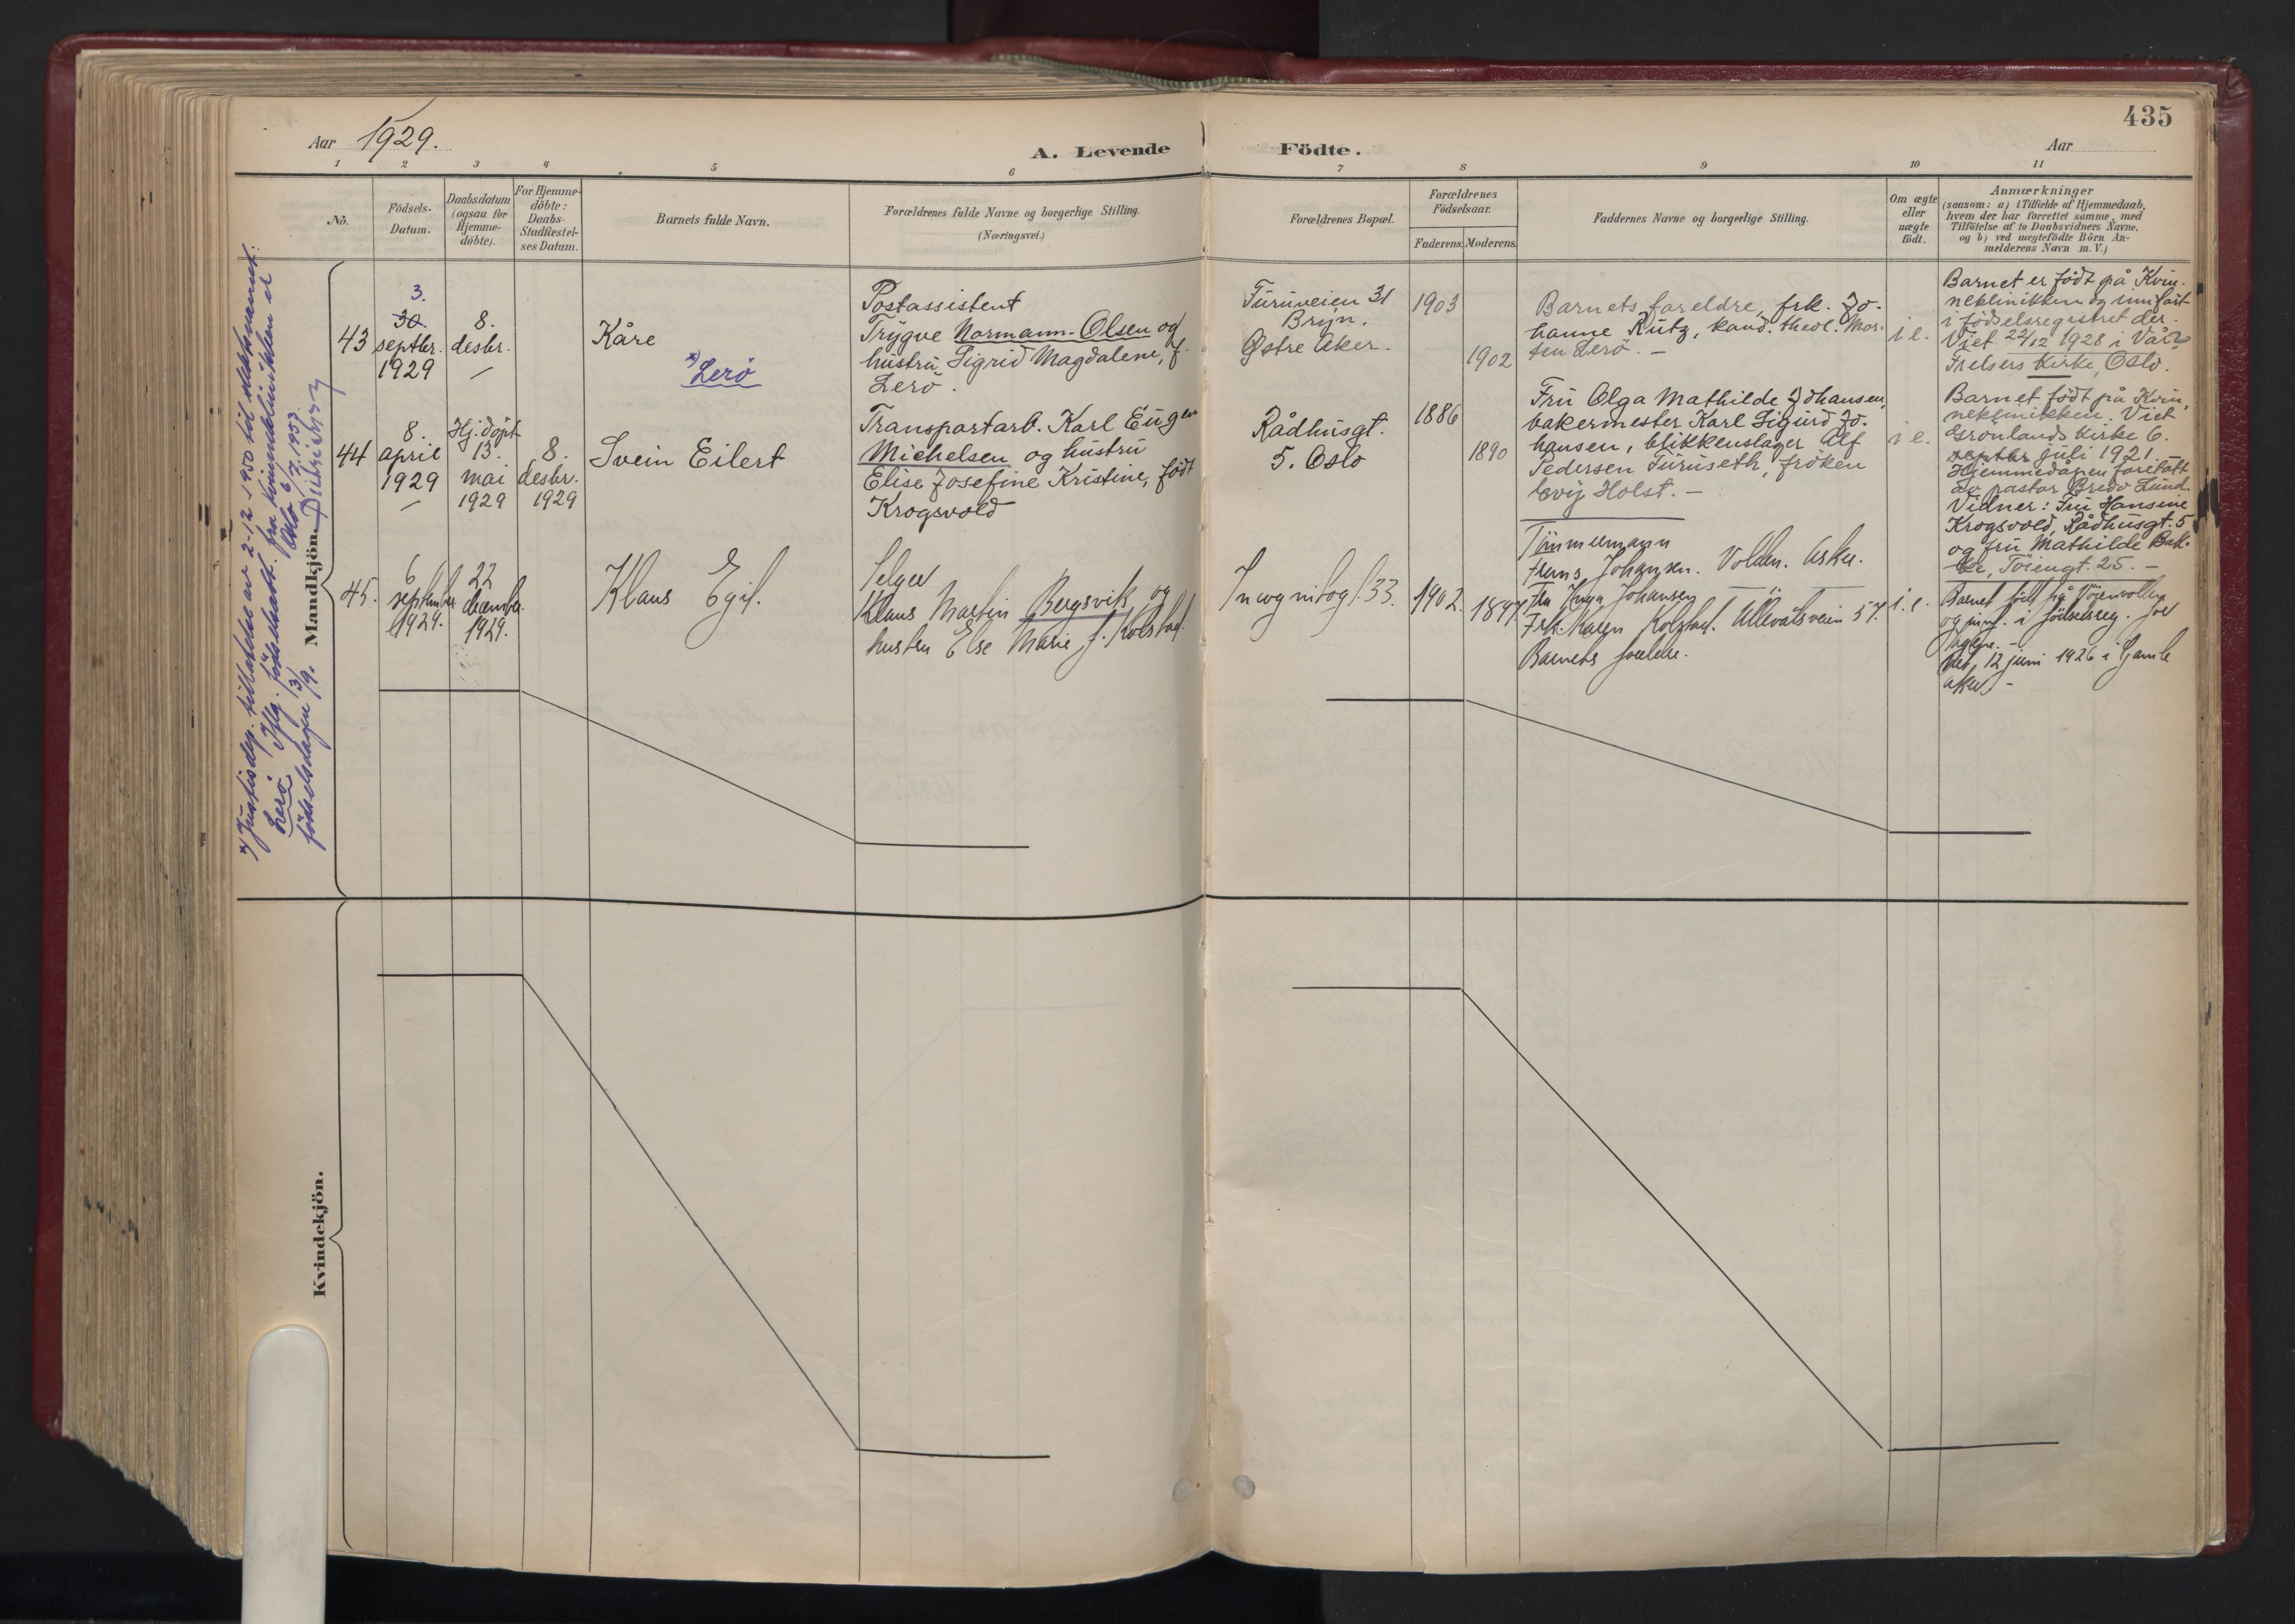 435
Aar 1929.
A. Levende Födte.
Aar
1 2 3 4 5 6 7 8 9 10 11
No.
Födsels-
Datum.
Daabsdatum
(ogsaa for
Hjemme-
döbte).
For Hjemme-
döbte:
Daabs-
Stadfæstel-
ses Datum.
Barnets fulde Navn.
Forældrenes fulde Navne og borgerlige Stilling.
(Næringsvei.)
Forældrenes Bopæl.
Forældrenes
Födselsaar.
Faderens. Moderens.
Faddernes Navne og borgerlige Stilling.
Om ægte
eller
uægte
födt.
Anmærkninger
(saasom: a) i Tilfælde af Hjemmedaab,
hvem der har forrettet samme, med
Tilföielse af to Daabsvidners Navne,
og b) ved uægtefödte Börn An-
melderens Navn m. V.)
Mandkjön.
43
3.
30.
septbr.
1929
8.
desbr.
—
Kåre
*) Lerö
Postassistent
Trygve Normann-Olsen og
hustru Sigrid Magdalene, f.
Lerö.
Furuveien 31
Bryn.
Østre Aker.
1903
1902
Barnets foreldre, frk. Jo-
hanne Rutz, kand. theol. Mor-
ten Lerö. —
i e.
Barnet er født på Kvin-
neklinikken og innført
i fødselsregistret der.
Viet 22/12 1928 i Vår
Frelsers Kirke, Oslo.
44
8.
april
1929
—
Hj. döpt
13.
mai
1929
8.
desbr.
1929
Svein Eilert
Transportarb. Karl Eugen
Michelsen og hustru
Elise Josefine Kristine, født
Krogsvold
Rådhusgt.
5. Oslo
1886
1890
Fru Olga Mathilde Johansen,
bakermester Karl Sigurd Jo-
hansen, blikkenslager Alf
Pedersen Furuseth, frøken
Evy Holst. —
i e.
Barnet født på Kvin-
neklinikken. Viet
Grönlands Kirke 6.
septbr juli 1921
Hjemmedåpen foretatt
av pastor Bredo Lund.
Vidner: Fru Hansine
Krogsvold, Rådhusgt. 5
og fru Mathilde Bak-
ke, Töiengt. 25. —
45.
6
september
1929.
22
december
1929.
Klaus Egil.
Selger
Klaus Martin Bergsvik og
hustru Else Marie f. Kolstad.
33.
1902.
Tömmermann
Frans Johansen. Volden. Asker.
Fru Inga Johansen
Frk. Karen Kolstad. Ullevålsveien 57.
Barnets foreldre.
i. e.
Barnet födt på
og innf. i födselsreg. for
Viet 12 juni 1926 i Gamle
Aker —
*) Justisdep. tillatelse av 2-12-1950 til slektsnavnet:
Lerö. Iflg. födselsatt. fra Kvinneklinikken er
födselsdagen 3/9. Oslo 6/7. 1953.
Kvindekjön.